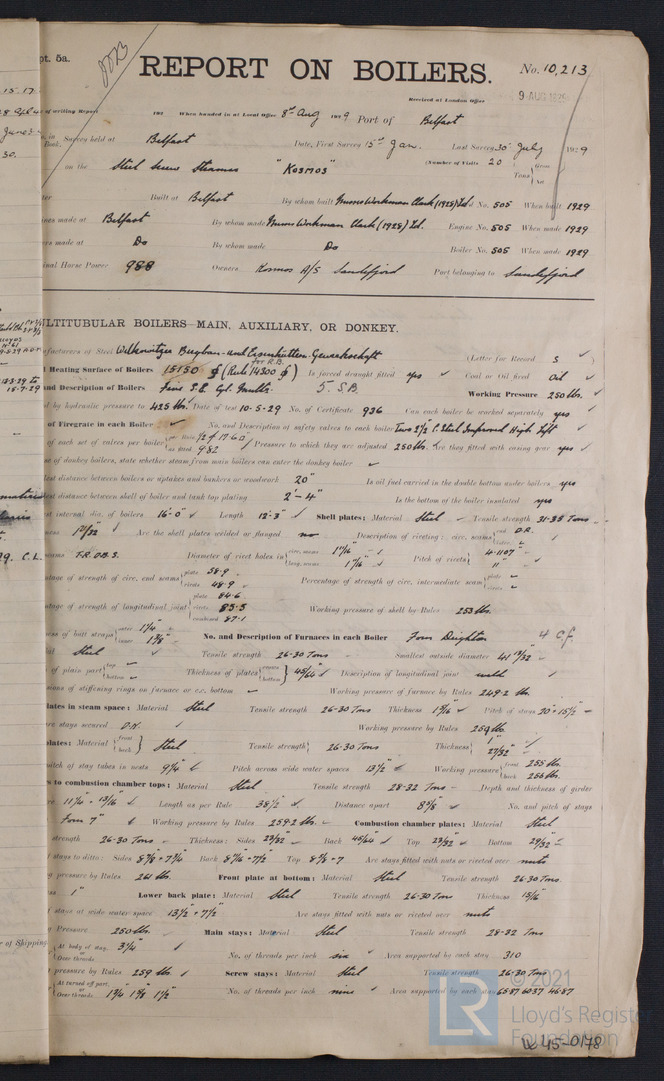 pt. 5a.
REPORT ON BOILERS.
No. 10,213
Received at London Office
9 AUG 1929
of writing Report 192 When handed in at Local Office 8th Aug 1929 Port of Belfast
No. in Survey held at Belfast Date, First Survey 15th Jan. Last Survey 30th July 1929
Book.
on the Steel Screw Steamer "Kosmos" (Number of Visits 20 Gross
Tons Net
Built at Belfast By whom built Messrs Workman Clark (1928) Ltd. No. 505 When built 1929
Engines made at Belfast By whom made Messrs Workman Clark (1928) Ltd. Engine No. 505 When made 1929
made at Do By whom made Do Boiler No. 505 When made 1929
Nominal Horse Power 988 Owners Kosmos A/S Sandefjord Port belonging to Sandefjord
MULTITUBULAR BOILERS MAIN, AUXILIARY, OR DONKEY.
Manufacturers of Steel Witkowitzer Bergbau- und Eisenhütten Gewerkschaft (Letter for Record S
for R.B.
Heating Surface of Boilers 15150 (Rule 14300) Is forced draught fitted yes Coal or Oil fired Oil
and Description of Boilers Five S.E. Cyl. Multr. 5. S.B. Working Pressure 250 lbs.
by hydraulic pressure to 425 lbs. Date of test 10-5-29 No. of Certificate 936 Can each boiler be worked separately yes
of Firegrate in each Boiler No. and Description of safety valves to each boiler Two 2½ C. Steel Improved High Lift
of each set of valves per boiler per Rule as fitted 9.82 Pressure to which they are adjusted 250 lbs. Are they fitted with easing gear yes
of donkey boilers, state whether steam from main boilers can enter the donkey boiler
distance between boilers or uptakes and bunkers or woodwork 20" Is oil fuel carried in the double bottom under boilers yes
distance between shell of boiler and tank top plating 2'-4" Is the bottom of the boiler insulated yes
internal dia. of boilers 16'-0" Length 12'-3" Shell plates: Material Steel Tensile strength 31-35 Tons
Are the shell plates welded or flanged no Description of riveting: circ. seams end D.R. inter.
seams T.R.D.B.S. Diameter of rivet holes in circ. seams 1 7/16 long. seams 1 7/16 Pitch of rivets 4.1107 11"
Percentage of strength of circ. end seams plate 58.9 rivets 48.9 Percentage of strength of circ. intermediate seam plate rivets
Percentage of strength of longitudinal joint plate 84.6 rivets 83.5 combined 87.1 Working pressure of shell by Rules 253 lbs.
of butt straps outer 1 1/4 inner 1 3/8 No. and Description of Furnaces in each Boiler Four Deighton 4 C.f.
Steel Tensile strength 26-30 Tons Smallest outside diameter 41 13/32
of plain part top bottom Thickness of plates crown bottom 45/64 Description of longitudinal joint weld
of stiffening rings on furnace or c.c. bottom Working pressure of furnace by Rules 249.2 lbs
plates in steam space: Material Steel Tensile strength 26-30 Tons Thickness 1 9/16 Pitch of stays 20" × 15½"
stays secured D.N. Working pressure by Rules 259 lbs
plates: Material front back Steel Tensile strength 26-30 Tons Thickness 1" 27/32
pitch of stay tubes in nests 9¼" Pitch across wide water spaces 13½" Working pressure front 255 lbs back 256 lbs.
to combustion chamber tops: Material Steel Tensile strength 28-32 Tons Depth and thickness of girder
Length as per Rule 38½ Distance apart No. and pitch of stays
Four 7" Working pressure by Rules 259.2 lbs. Combustion chamber plates: Material Steel
strength 26-30 Tons Thickness: Sides 23/32 Back 45/64 Top 23/32 Bottom 29/32
stays to ditto: Sides 8⅞ × 7¾ Back 8⅛ × 7½ Top 8⅞ × 7 Are stays fitted with nuts or riveted over nuts
pressure by Rules 261 lbs Front plate at bottom: Material Steel Tensile strength 26-30 Tons.
1" Lower back plate: Material Steel Tensile strength 26-30 Tons Thickness 15/16
stays at wide water space 13½ × 7½ Are stays fitted with nuts or riveted over nuts
Pressure 250 lbs. Main stays: Material Steel Tensile strength 28-32 Tons
At body of stay, or Over threads 3¼" No. of threads per inch six Area supported by each stay 310
pressure by Rules 259 lbs Screw stays: Material Steel Tensile strength 26-30 Tons
At turned off part, or Over threads 1¾ 1⅝ 1½ No. of threads per inch nine Area supported by each stay 65.87 60.37 46.87
© 2021
Lloyd's Register
Foundation
LR
W 45-0178